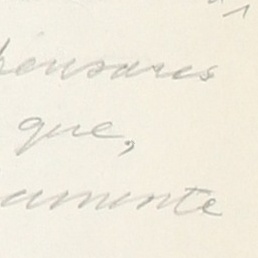 pensares
que,
amente